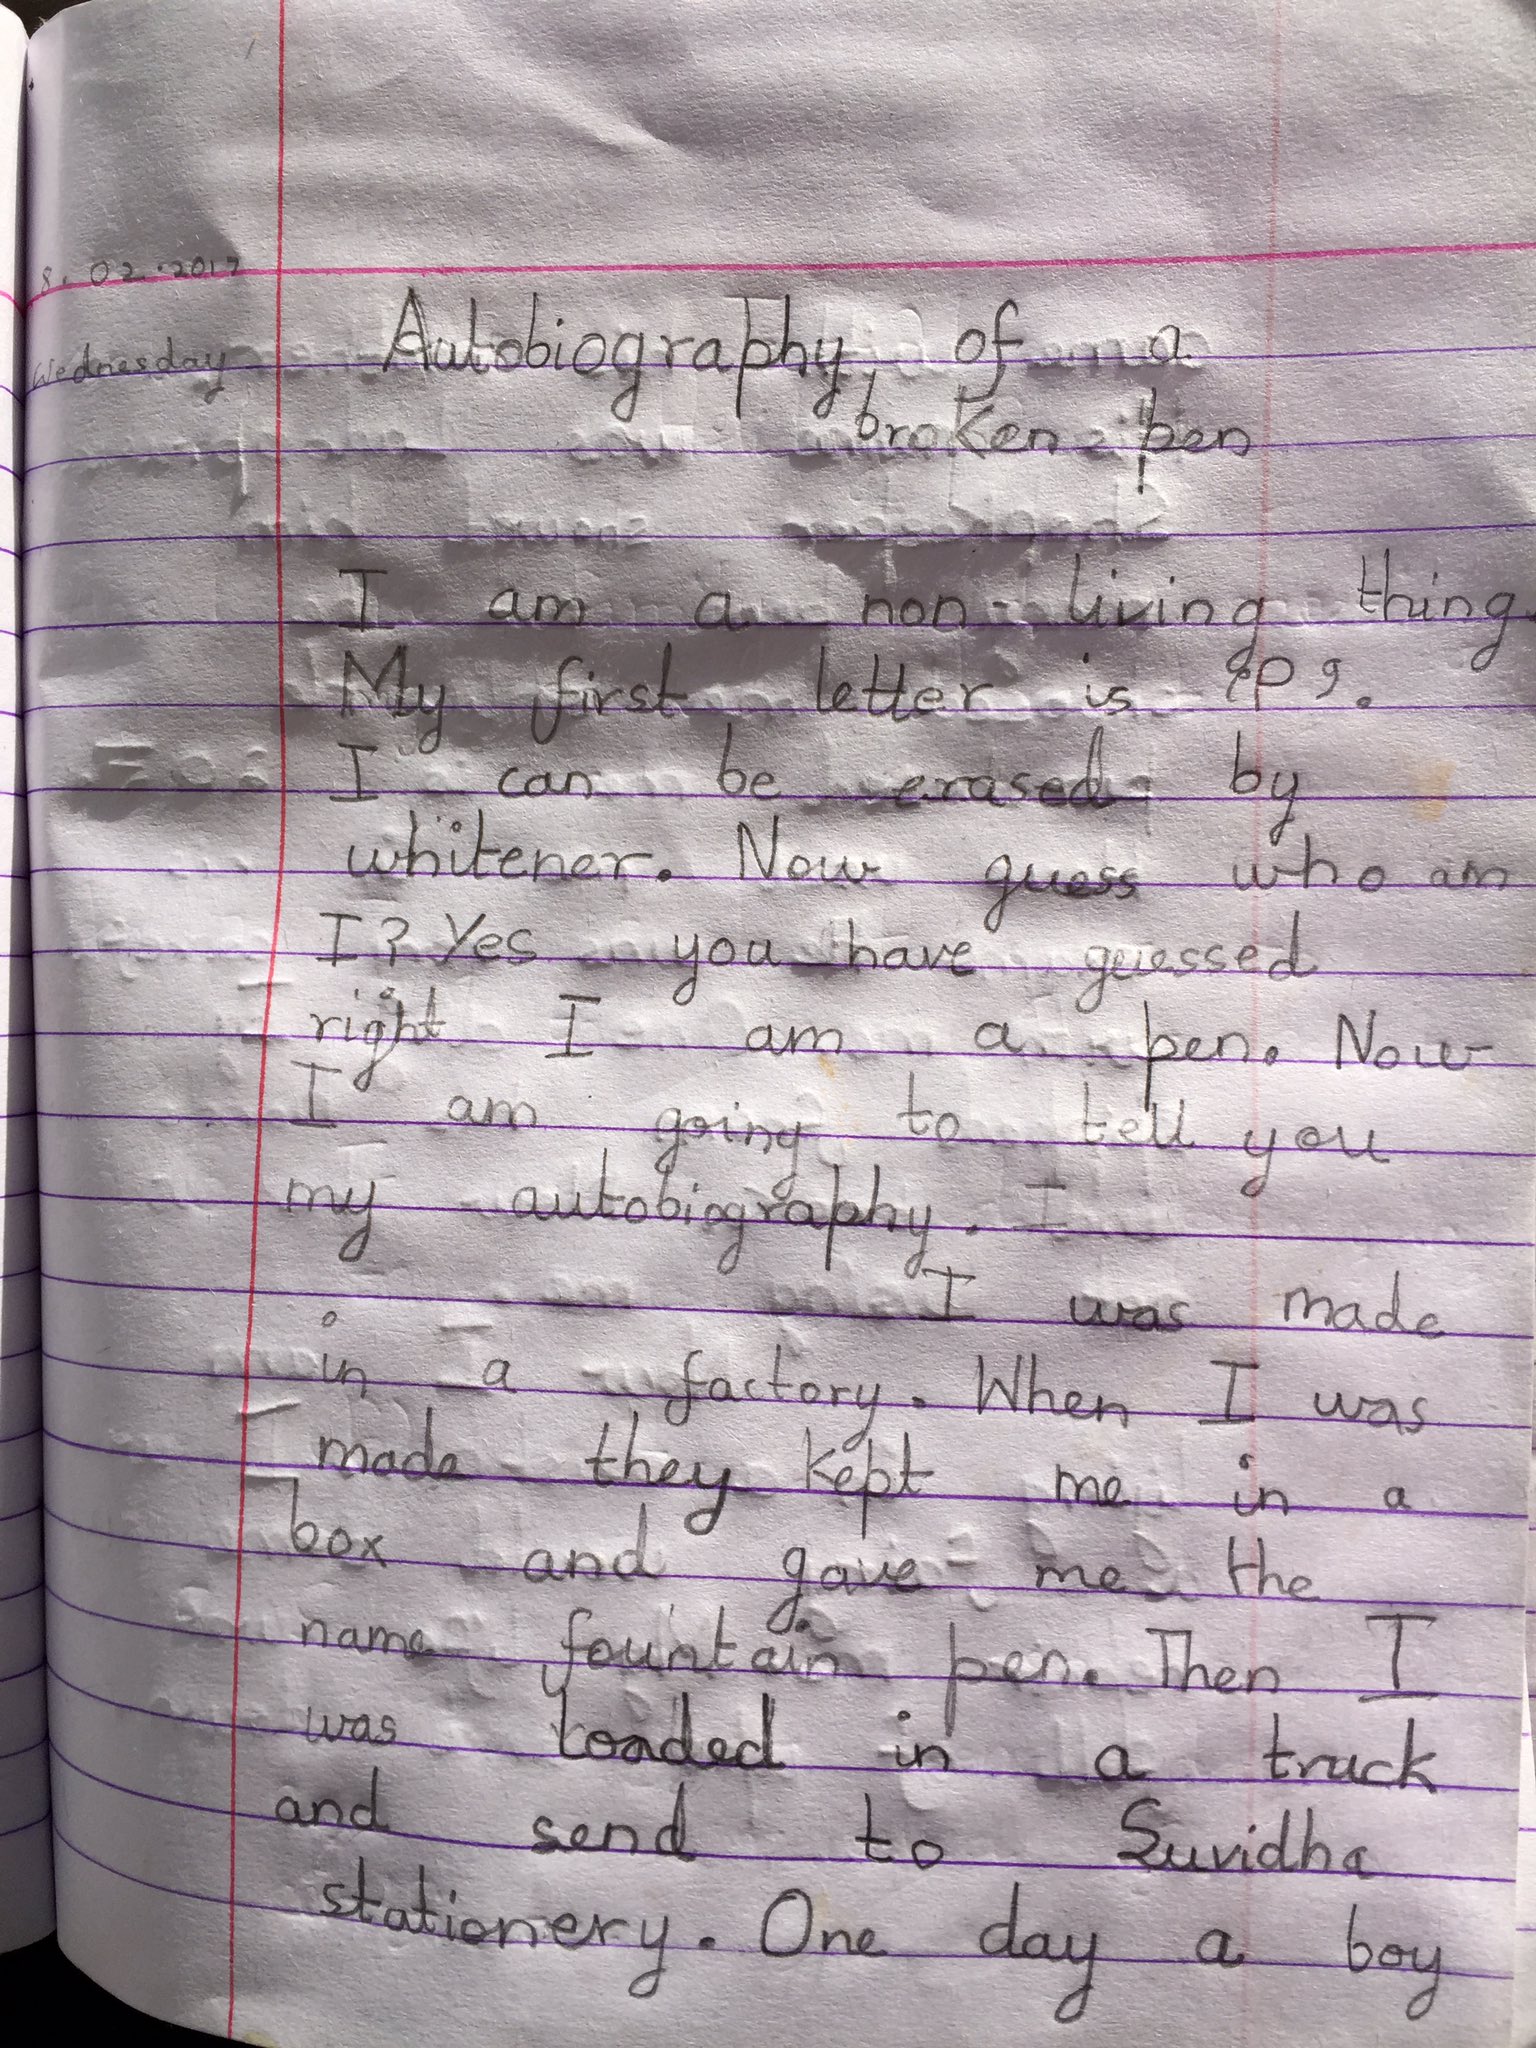 8.02.2017
Wednesday
Autobiography of a
broken pen
I am a non-living thing.
My first letter is 'P'.
I can be erased by
whitener. Now guess who am
I? Yes you have guessed
right I am a pen. Now
I am going to tell you
my autobiography. I
I was made
in a factory. When I was
made they kept me in a
box and gave me the
name fountain pen. Then I
was loaded in a truck
and send to Suvidha
stationery. One day a boy